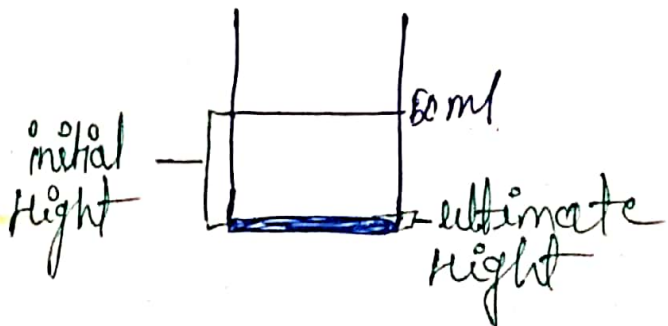 50 ml
initial
Hight
ultimate
Hight